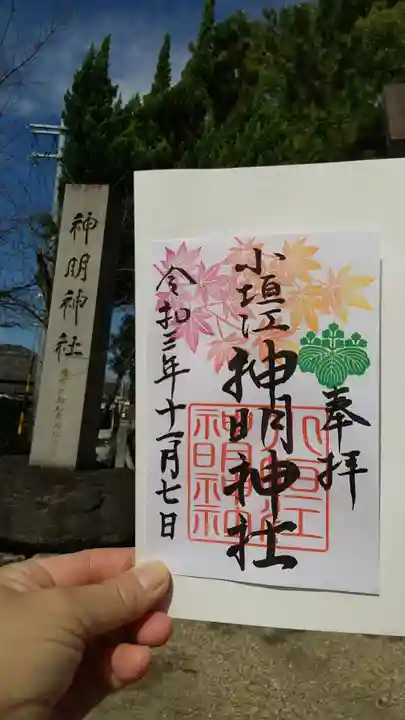 奉拝
小垣江神明神社
令和三年十一月七日
小垣江
神明神社
神明神社